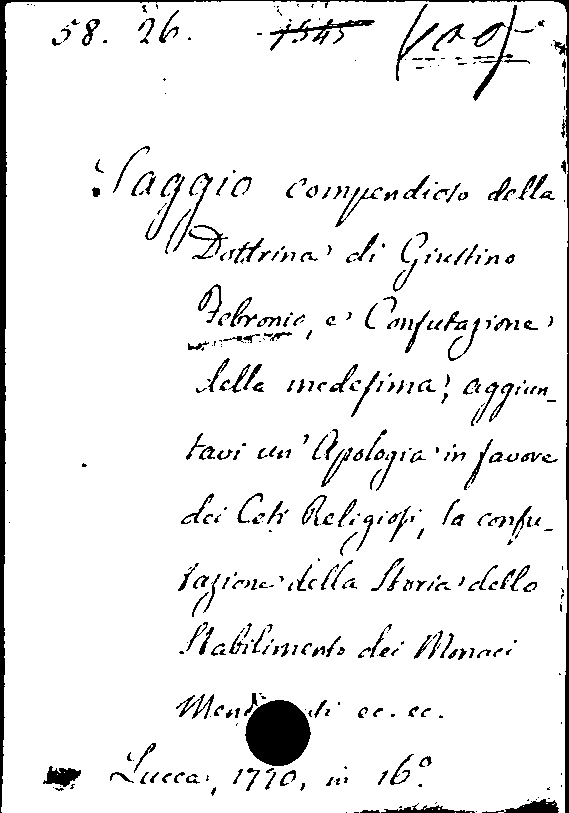 58. 26. 1545
Saggio compendioso della
Dottrina di Giustino
Febronio, e Confutazione
della medesima, aggiun-
tavi un' Apologia in favore
dei Ceti Religiosi, la confu-
tazione della Storia dello
Stabilimento dei Monaci
ec. ec.
Lucca, 1770, in 16º